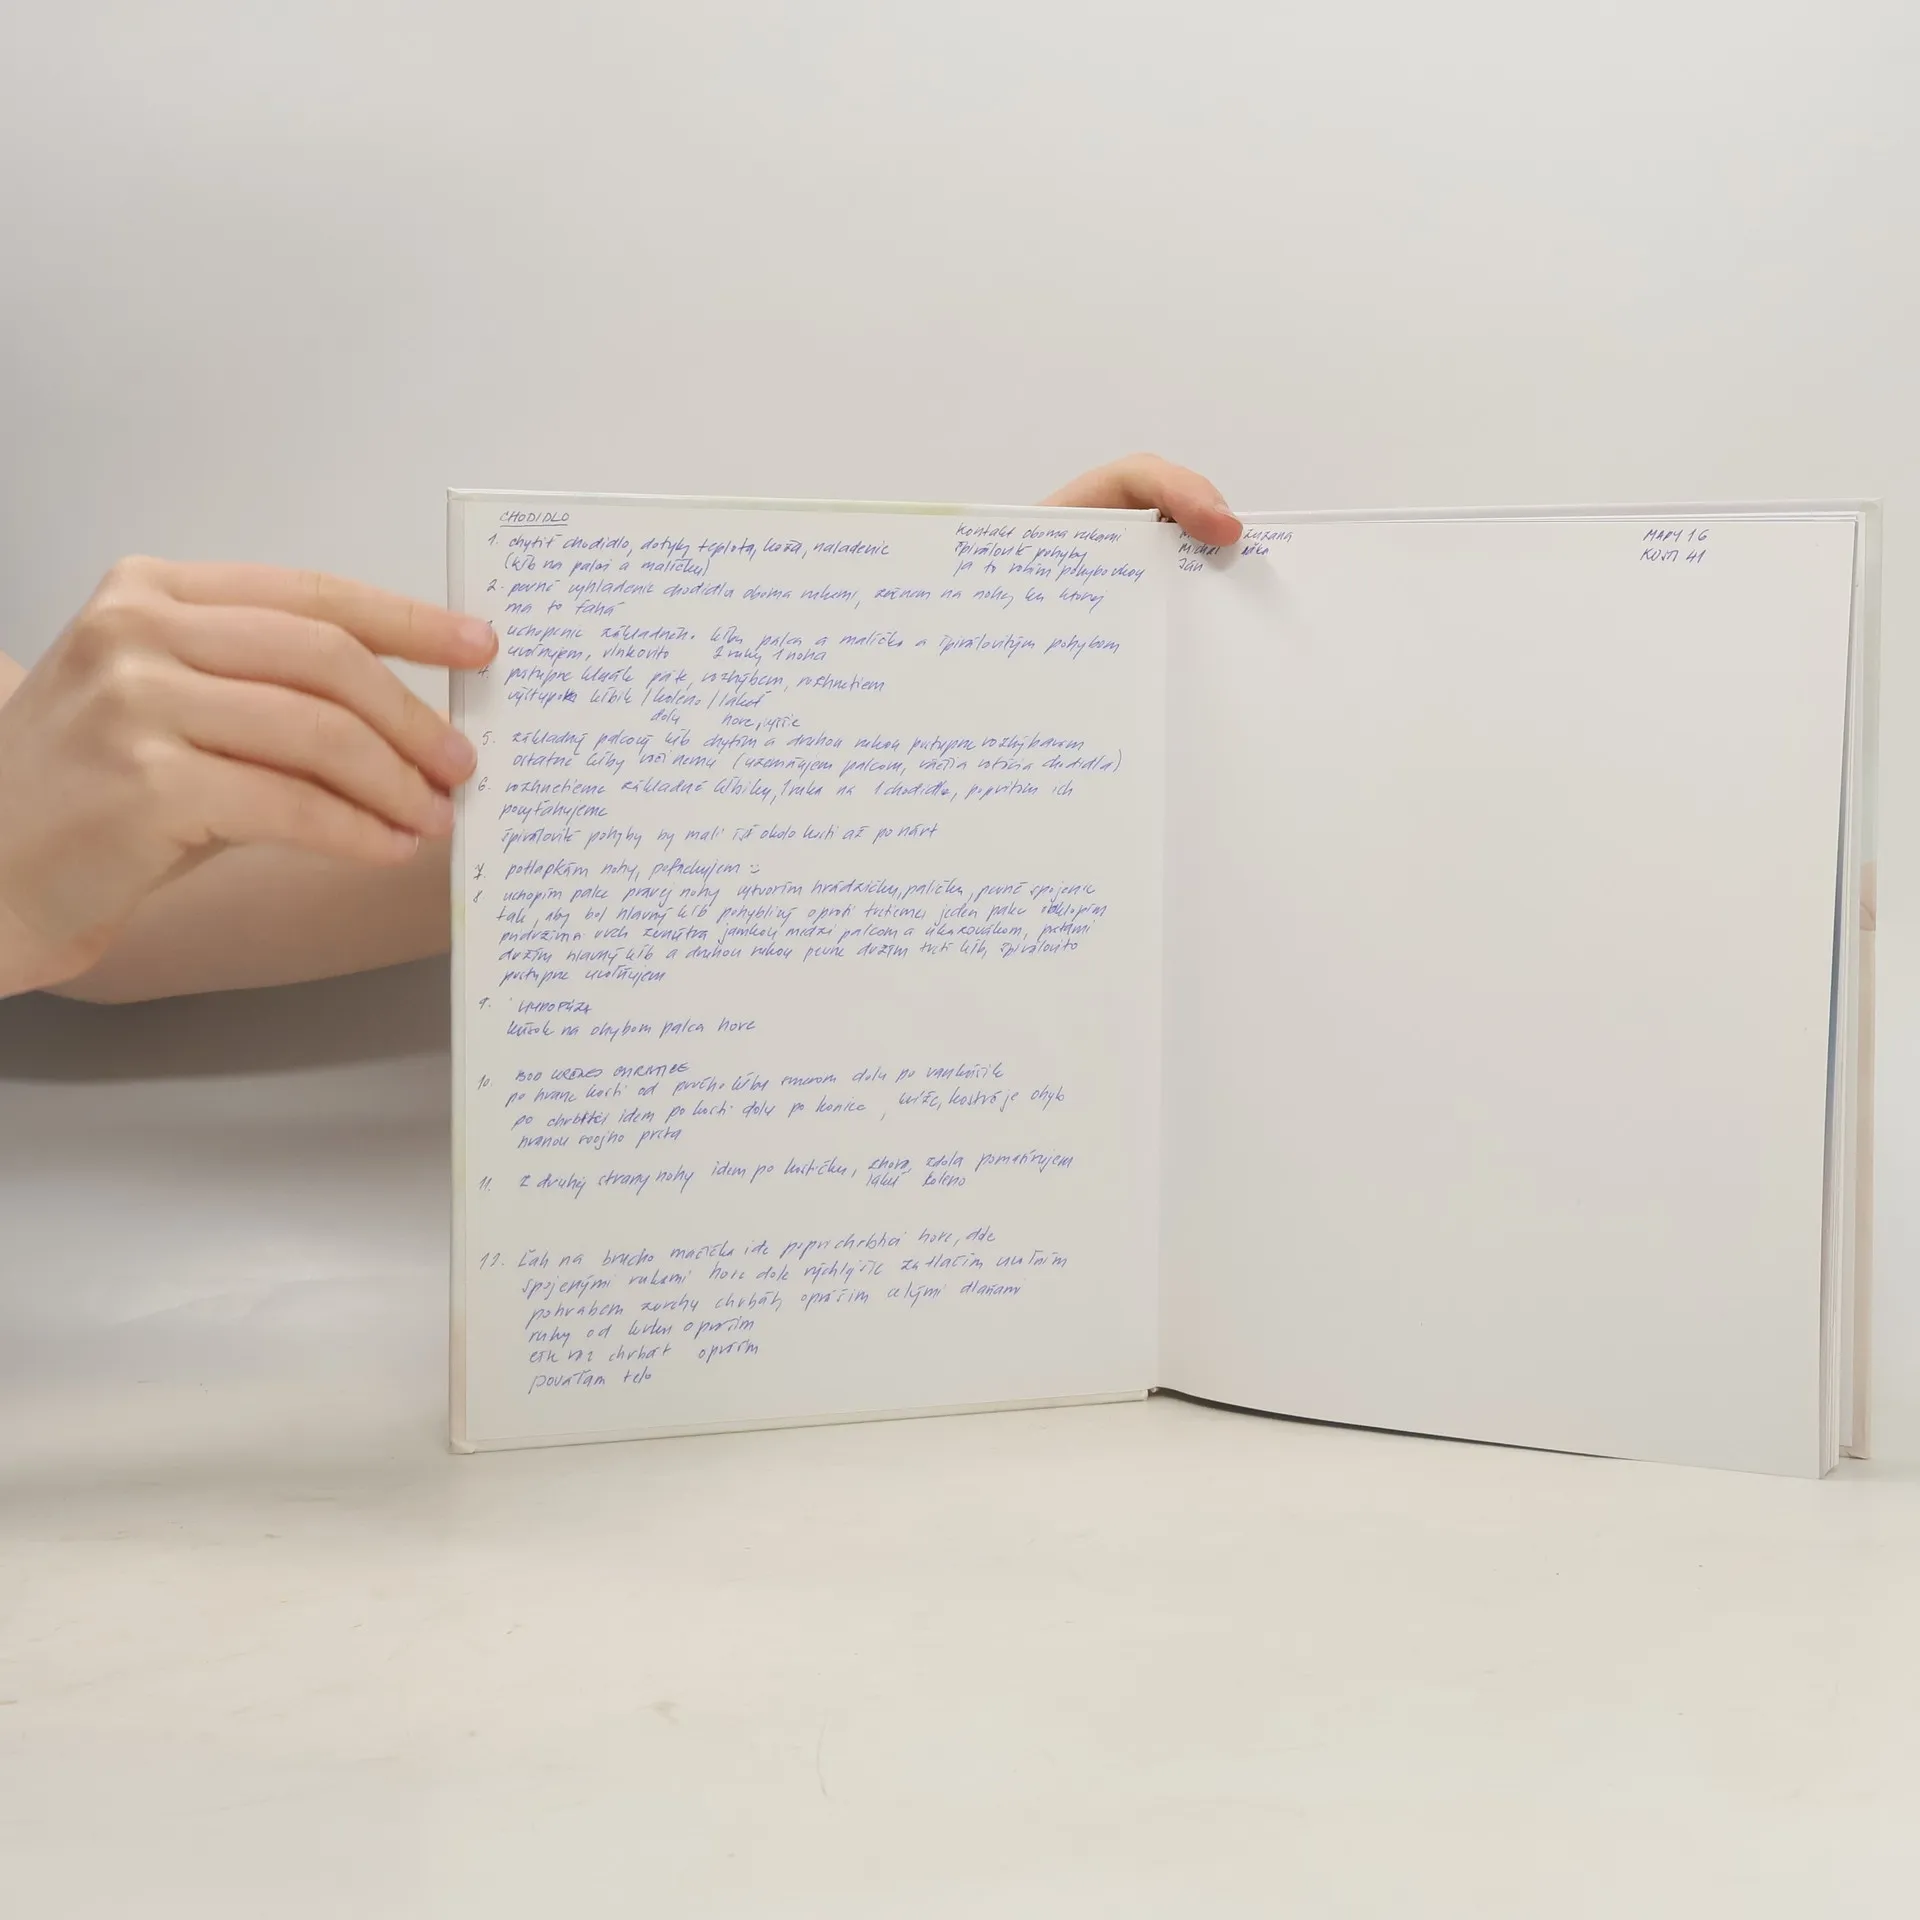 CHODIDLO
1. chytiť chodidlo, dotyk, teplota, koža, naladenie
(kĺb na palci a malíčku)
Kontakt oboma rukami
špirálovité pohyby
ja to robím pohybovkou
2. pevné vyhladenie chodidla oboma rukami, začnem na nohe ku ktorej
ma to ťahá
uchopenie základného kĺbu palca a malíčka a špirálovitým pohybom
uvoľňujem, vlnkovito 2 ruky 1 noha
4. postupne päte, rozhýbem, rozhnetiem
kĺbik / koleno / lakeť
dolu hore, vyššie
5. základný palcový kĺb chytím a druhou rukou postupne rozhýbavam
ostatné kĺby voči nemu (uzemňujem palcom, väčšia rotácia chodidla)
6. rozhnetieme základné kĺbiky, 1 ruka na 1 chodidle, popritom ich
povyťahujeme
špirálovité pohyby by mali ísť okolo kosti až po nárt
7. potlapkám nohy, :)
8 uchopím palec pravej nohy vytvorím hrádzičku, paličku, pevné spojenie
tak, aby bol hlavný kĺb pohyblivý oproti tretiemu jeden palec obklopím
zvnútra jamkou medzi palcom a ukazovákom, prstami
držím hlavný kĺb a druhou rukou pevne držím tretí kĺb, špirálovito
postupne uvoľňujem
9. HYPOFÝZA
krúžok na ohybom palca hore
10. BOD CHRBTICE
po hrane kosti od prvého kĺbu smerom dolu po vankúšik
po chrbtici idem po kosti dolu po konice, kríže, kostrč je ohyb
hranou svojho prsta
11. z druhej strany nohy idem po kostičku, zhora, zdola pomasírujem
lakeť koleno
12. Ľah na brucho mačička ide popri chrbtici hore, dole
spojenými rukami hore dole rýchlejšie zatlačím uvoľním
pohrabem zvrchu chrbát, opráším celými dlaňami
ruky od krku opráším
ešte raz chrbát opráším
povaľam telo
Zuzana
Michal
Ján
MAPY 16
KOSTI 41